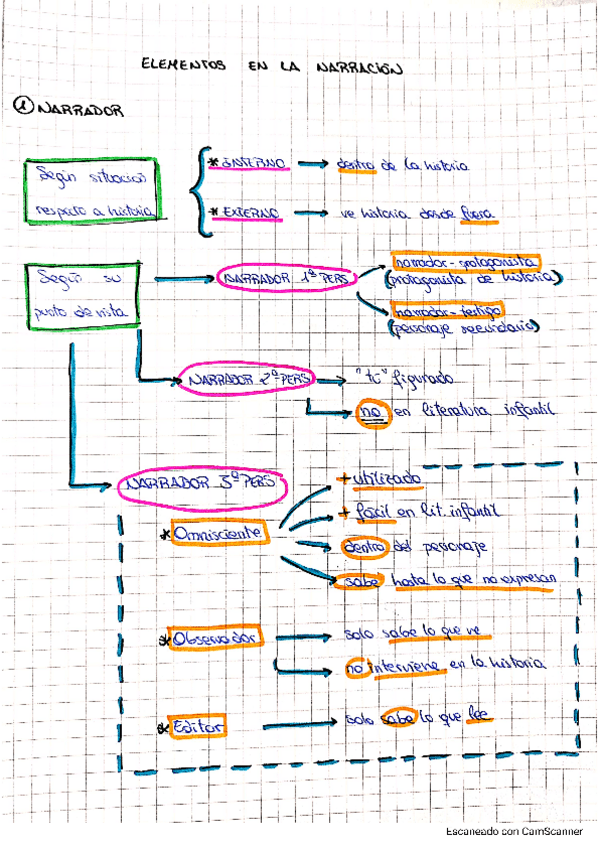 ELEMENTOS EN LA NARRACIÓN
① NARRADOR
Según situación
respecto a historia
* INTERNO → dentro de la historia
* EXTERNO → ve historia desde fuera
Según su
punto de vista
NARRADOR 1ª PERS
narrador-protagonista
(protagonista de historia)
narrador-testigo
(personaje secundario)
NARRADOR 2ª PERS → "tú" figurado
no en literatura infantil
NARRADOR 3ª PERS
* Omnisciente
+ utilizado
+ fácil en lit. infantil
dentro del personaje
sabe hasta lo que no expresan
* Observador → solo sabe lo que ve
no interviene en la historia
* Editor → solo sabe lo que lee
Escaneado con CamScanner